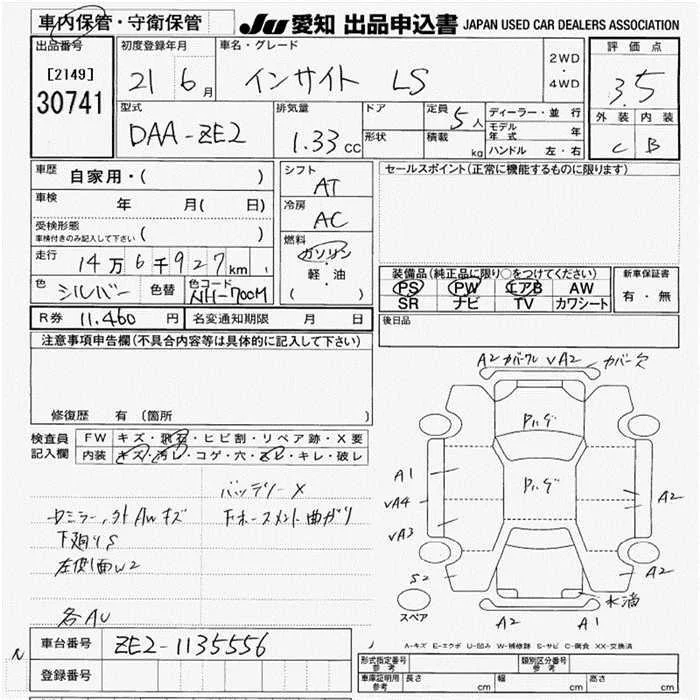 車内保管・守衛保管
JU 愛知 出品申込書 JAPAN USED CAR DEALERS ASSOCIATION
出品番号
[2149]
30741
初度登録年月
21 6月
車名・グレード
インサイト LS
2WD
・
4WD
評価点
3.5
外装 内装
C B
型式
DAA-ZE2
排気量
1.33 CC
ドア
形状
定員 5人
積載 kg
ディーラー・並行
モデル年式 年
ハンドル 左・右
車歴 自家用・( )
車検 年 月( 日)
受検形態
車検付きのみ記入して下さい ( )
走行 14万6千927km
色 シルバー 色替 色コード NH-700M
シフト
AT
冷房
AC
燃料
ガソリン
・
軽・油
( )
セールスポイント(正常に機能するものに限ります)
装備品(純正品に限り○をつけてください)
PS PW エアB AW
SR ナビ TV カワシート
新車保証書
有・無
R券 11,460 円 名変通知期限 月 日
後日品
注意事項申告欄(不具合内容等は具体的に記入して下さい)
修復歴 有 (箇所 )
検査員記入欄
FW キズ・飛石・ヒビ割・リペア跡・X要
内装 キズ・汚レ・コゲ・穴・ズレ・キレ・破レ
バッテリーX
外AWキズ
下ホースメント曲ガリ
下廻りS
左側面W2
各AU
A2 カバーワレ VA2 カバー欠
Pハゲ
Pハゲ
A1
VA4
VA3
S2
A2
A2
水滴
スペア
A2 A1
車台番号 ZE2-1135556
登録番号
A-キズ E-エクボ U-凹み W-補修跡 S-サビ C-腐食 XX-交換済
型式指定番号 参考
類別区分番号 参考
車庫証明用 参考
長さ cm
幅 cm
高さ cm